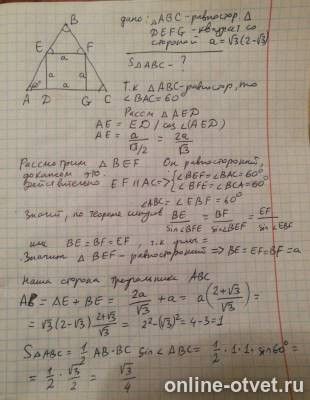 B
E F
a
a a
60°
a
A D G C
дано: △ABC - равностор. △
DEFG - квадрат со
стороной a = √3(2-√3)
S△ABC - ?
Т.к △ABC - равностор, то
∠BAC = 60°
Рассм △AED
AE = ED / cos(∠AED)
AE = a / (√3/2) = 2a/√3
Рассмотрим △BEF. Он равносторонний,
докажем это.
действительно EF || AC => { ∠BEF = ∠BAC = 60°
∠BFE = ∠BCA = 60°
∠ABC = ∠EBF = 60°
Значит, по теореме синусов BE/sin∠BFE = BF/sin∠BEF = EF/sin∠EBF
или BE = BF = EF, т.к углы =
Значит △BEF - равносторонний => BE = EF = BF = a
Наша сторона треугольника ABC
AB = AE + BE = 2a/√3 + a = a(2+√3/√3) =
= √3(2-√3) 2+√3/√3 = 2²-(√3)² = 4-3 = 1
S△ABC = 1/2 AB·BC sin∠ABC = 1/2·1·1·sin60° =
= 1/2·√3/2 = √3/4
online-otvet.ru